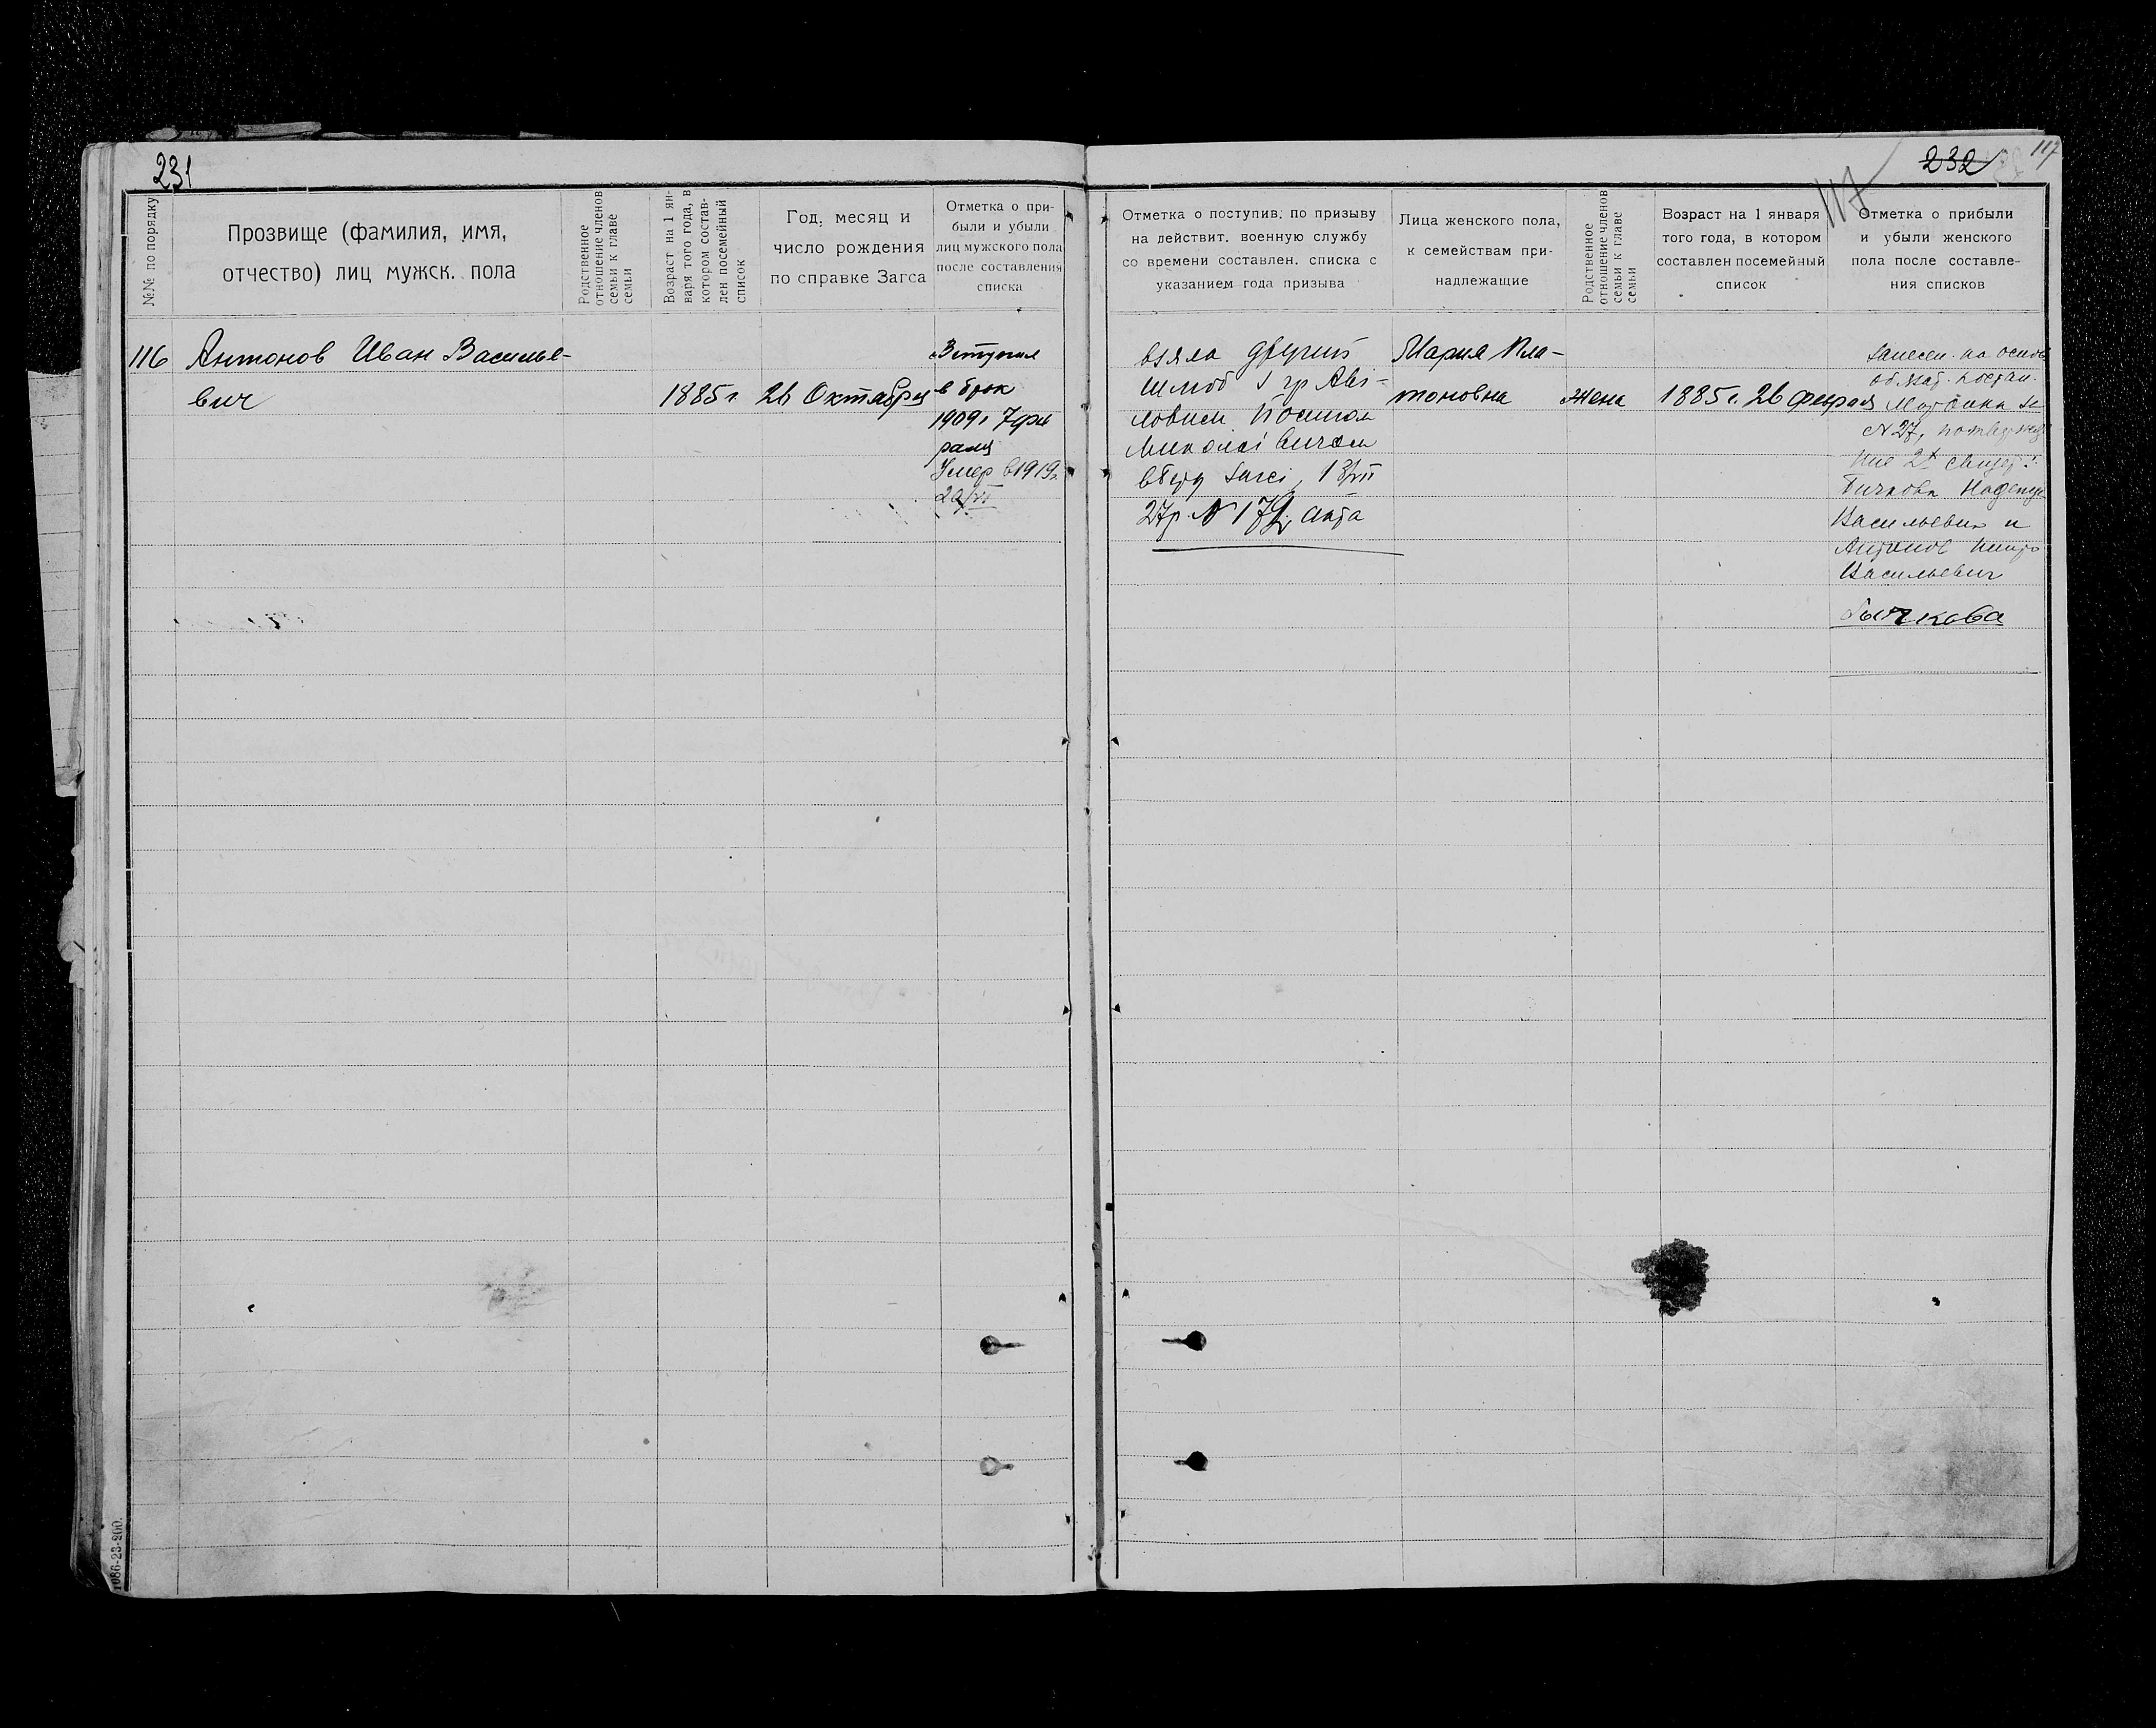 231
№№ по порядку
Прозвище (фамилия, имя,
отчество) лиц мужск. пола
Родственное
отношение членов
семьи к главе
семьи
Возраст на 1 ян-
варя того года, в
котором состав-
лен посемейный
список
Год, месяц и
число рождения
по справке Загса
Отметка о при-
были и убыли
лиц мужского пола
после составления
списка
116 Антонов Иван Василье-
вич
1885 г. 26 Октября
Вступил
в брак
1909 г 7 фев
раля
Умер в 1919 г.
20/VI
1086-23-200.
232
117
117
Отметка о поступив. по призыву
на действит. военную службу
со времени составлен. списка с
указанием года призыва
Лица женского пола,
к семействам при-
надлежащие
Родственное
отношение членов
семьи к главе
семьи
Возраст на 1 января
того года, в котором
составлен посемейный
список
Отметка о прибыли
и убыли женского
пола после составле-
ния списков
взяла
с гр
27 г. № 172,
Мария Пла-
тоновна
жена
1885 г. 26 февраля
занесен. на основ
№ 27,
Васильевич и
Антонов
Васильевич
Бычкова